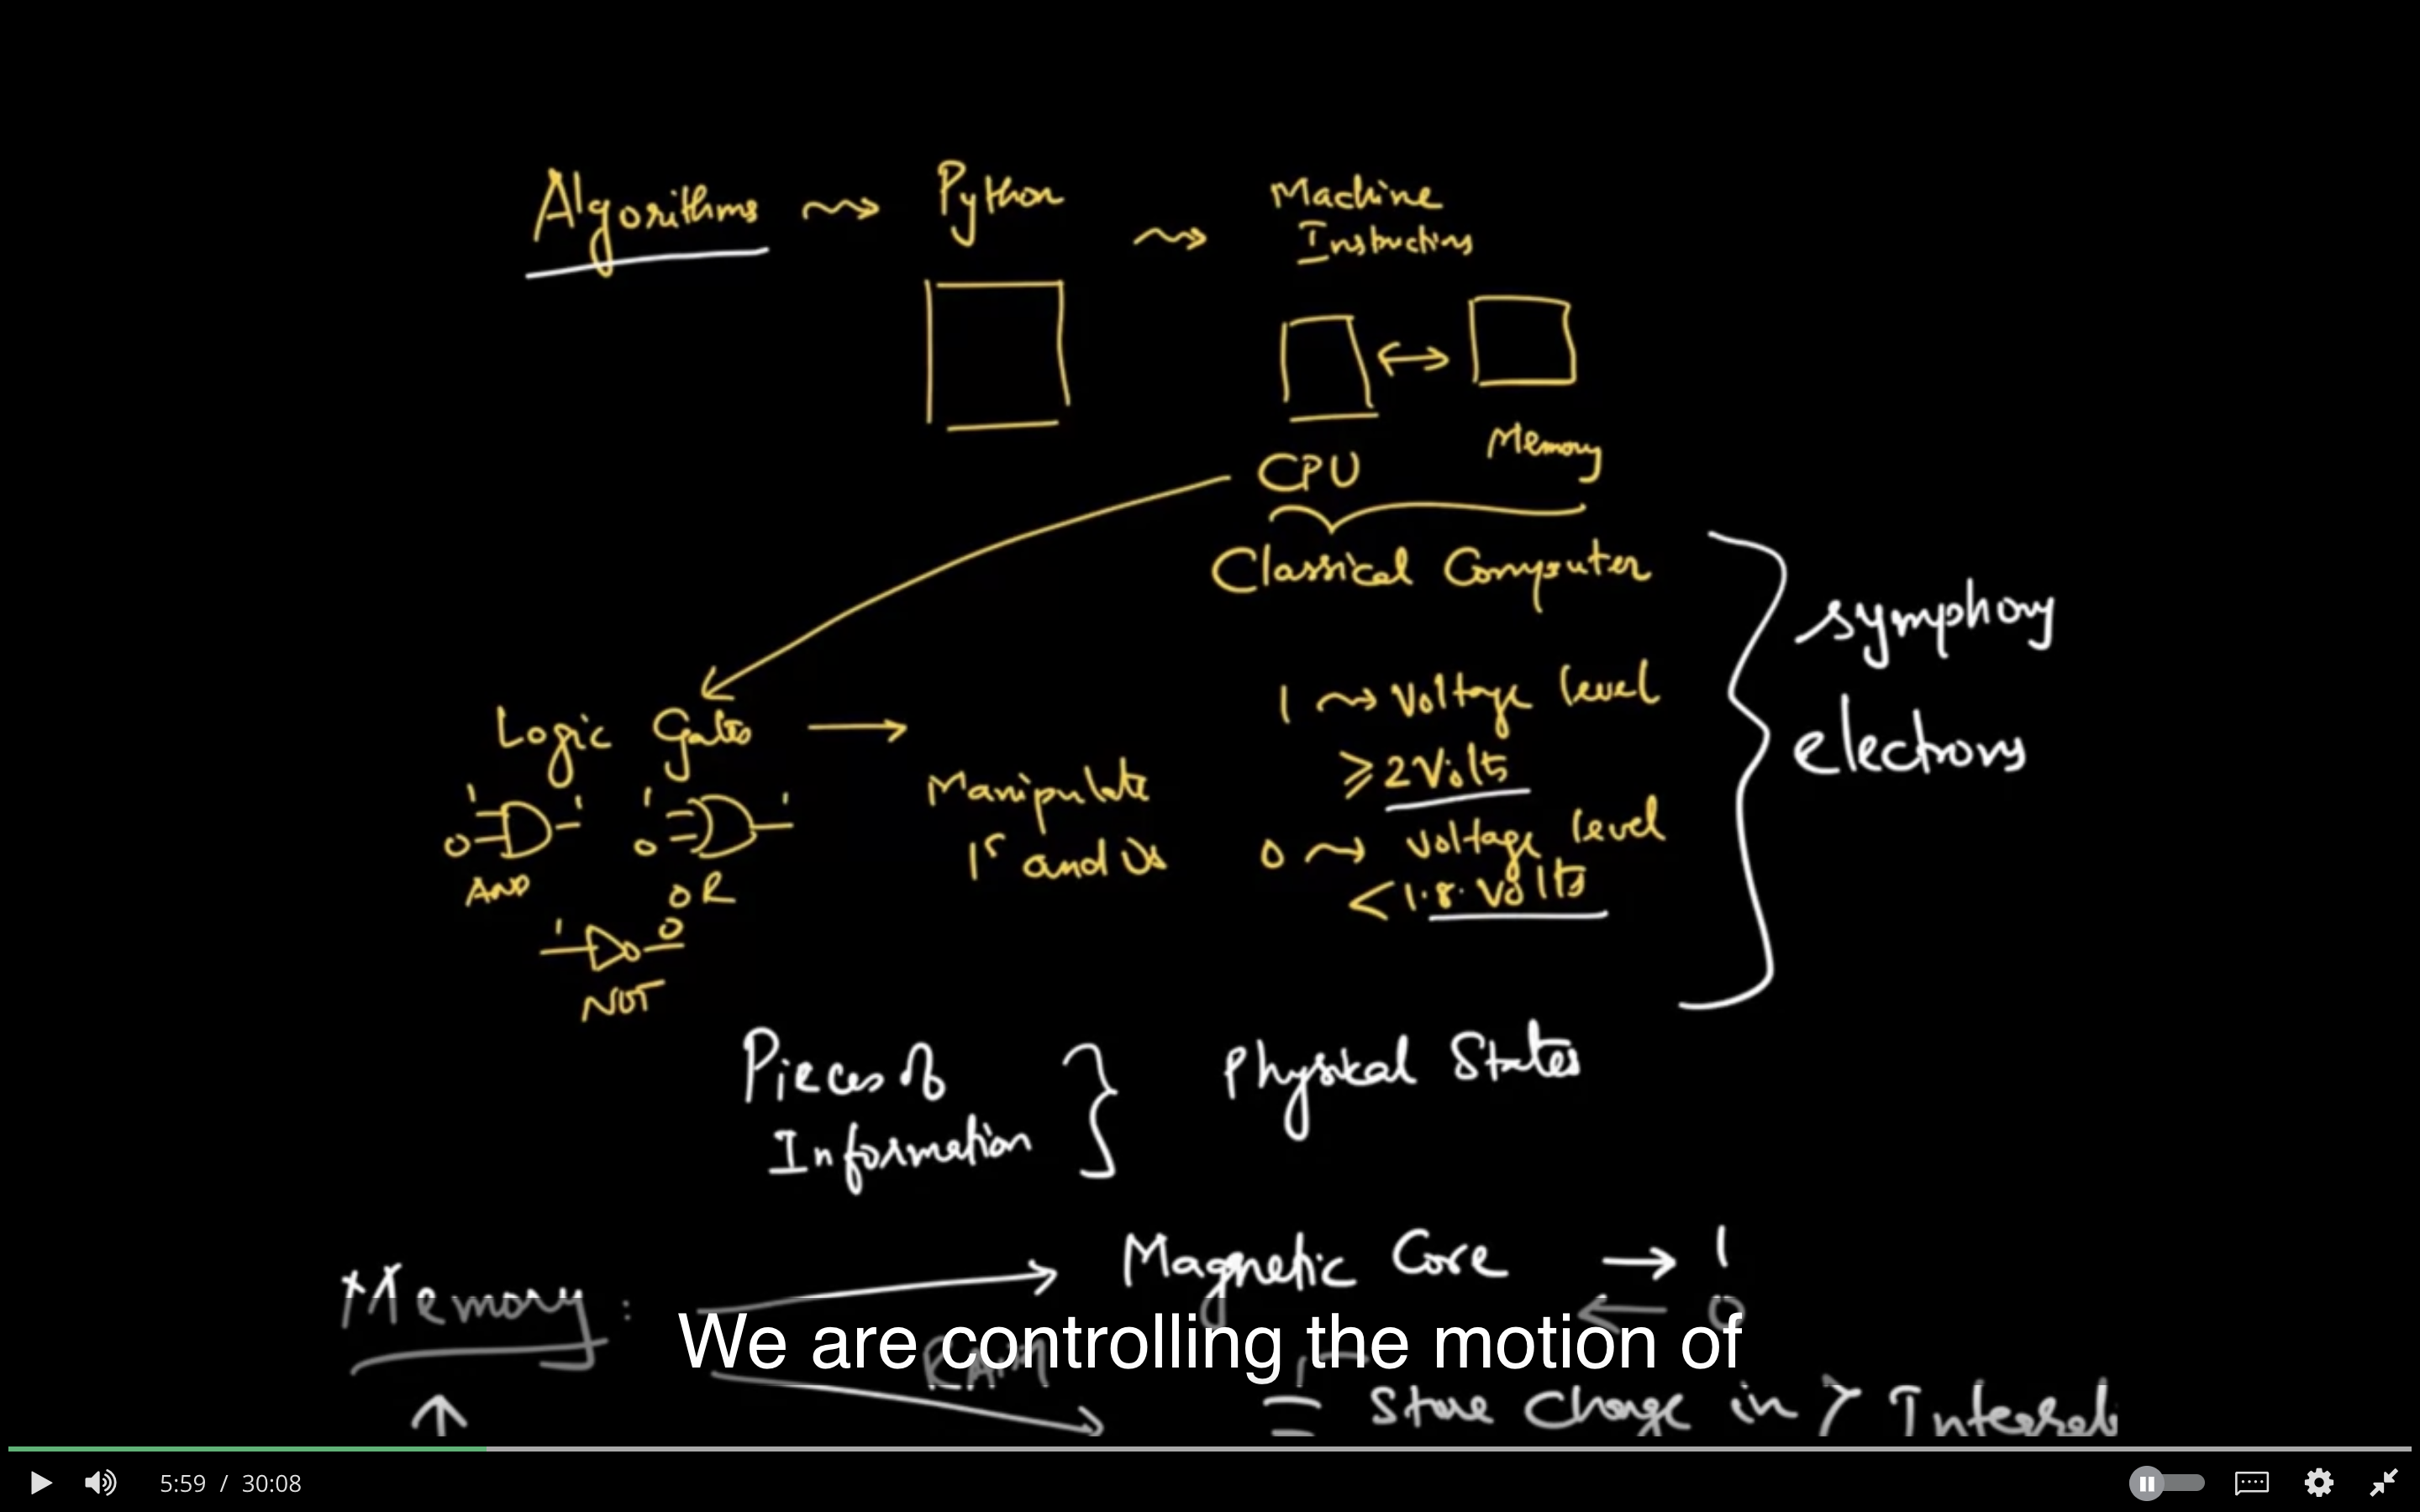 Algorithms
Python
Machine
Instructions
CPU
Memory
Classical Computer
symphony
electrons
Logic Gates
1
0
1
AND
1
0
1
OR
1
0
NOT
Manipulate
1s and 0s
1 voltage level
≥ 2 Volts
0 voltage level
< 1.8 Volts
Pieces of
Information
Physical States
Memory:
Magnetic Core → 1
← 0
RAM
Store Charge in
We are controlling the motion of
5:59 / 30:08